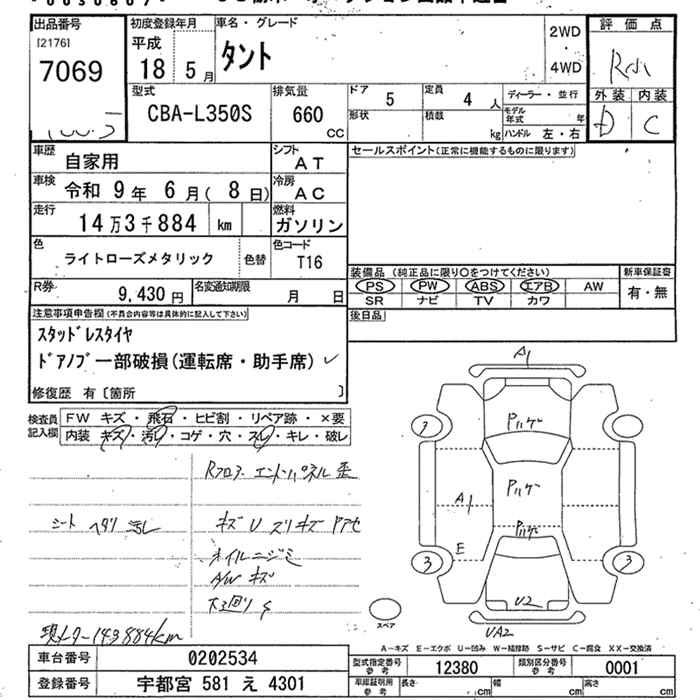 出品番号 初度登録年月 車名・グレード 2WD 評価点
[2176] 平成
7069 18 年 5 月 タント 4WD R小
型式 排気量 ドア 定員 ディーラー・並行 外装 内装
CBA-L350S 660 cc 5 4 人 D C
形状 積載 kg モデル年式 年 ハンドル 左・右
車歴 自家用 シフト AT セールスポイント(正常に機能するものに限ります)
車検 令和 9 年 6 月( 8 日) 冷房 AC
走行 14 万 3 千 884 km 燃料 ガソリン
色 ライトローズメタリック 色替 色コード T16
装備品 (純正品に限り○をつけてください) 新車保証書
R券 9,430 円 名変通知期限 月 日 PS PW ABS エアB AW 有・無
SR ナビ TV カワ
注意事項申告欄(不具合内容等は具体的に記入して下さい) 後日品
スタッドレスタイヤ
ドアノブ一部破損(運転席・助手席) ✓
修復歴 有〔箇所 〕
検査員記入欄 FW キズ・飛石・ヒビ割・リペア跡・×要
内装 キズ・汚レ・コゲ・穴・スレ・キレ・破レ
Rフロア エンドパネル 歪
シート ヘタリ 汚レ キズ U スリキズ Pアセ
オイルニジミ
A/W キズ
下回り S
現メーター143884km
A1
Pハゲ
3
Pハゲ
A1
Pハゲ
E
3 3
U2
UA2
スペア
A－キズ E－エクボ U－凹み W－補修跡 S－サビ C－腐食 XX－交換済
車台番号 0202534 型式指定番号 参考 12380 類別区分番号 参考 0001
登録番号 宇都宮 581 え 4301 車庫証明用 参考 長さ cm 幅 cm 高さ cm